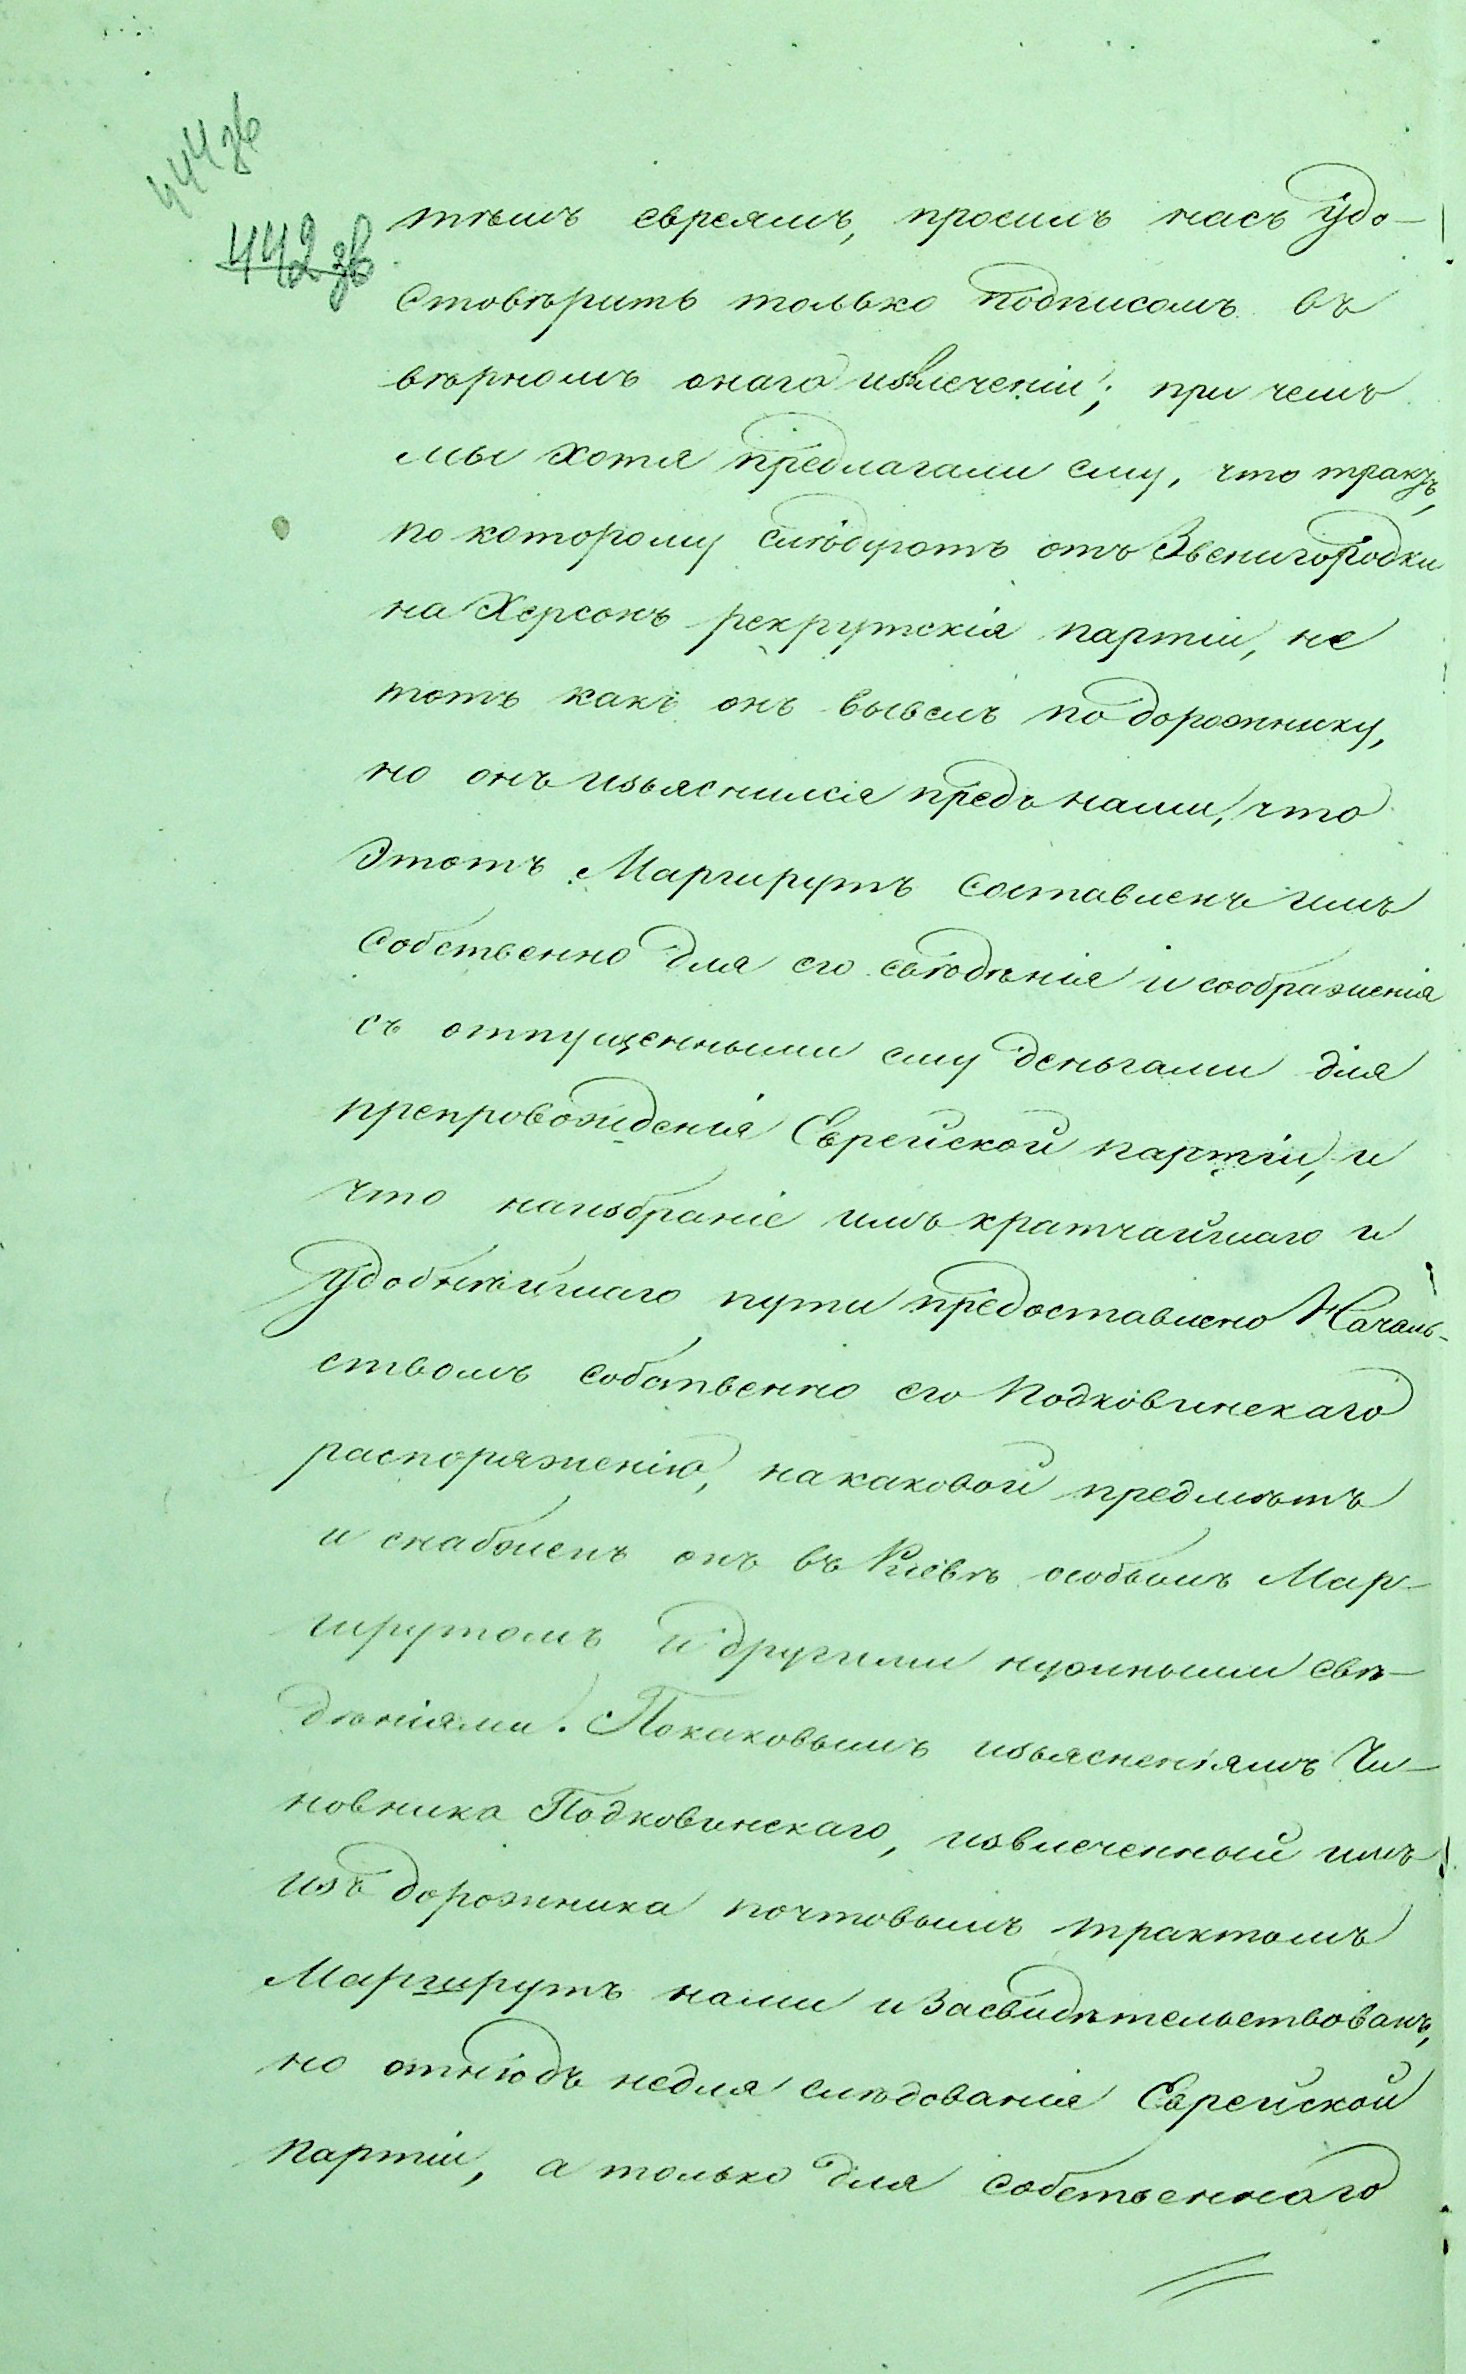 444 зв
442 зв
тѣмъ евреямъ, просилъ насъ удо-
стовѣрить только подписомъ въ
вѣрномъ онаго извлеченіи; при чемъ
мы хотя предлагали ему, что тракт,
по которому слѣдуютъ отъ Звенигородки
на Херсонъ рекрутскія партіи, не
тотъ какъ онъ вывелъ по дорожнику,
но онъ изъяснился предъ нами, что
этотъ Маршрутъ составленъ имъ
собственно для его свѣдѣнія и соображенія
съ отпущенными ему деньгами для
препровожденія Еврейской партіи, и
что наизбраніе имъ кратчайшаго и
удобнѣйшаго пути предоставлено Началь-
ствомъ собственно его Подковинскаго
распоряженію, на каковой предмѣтъ
и снабженъ онъ въ Кіевѣ особымъ Мар-
шрутомъ и другими нужными свѣ-
дѣніями. Покаковымъ изъясненіямъ Чи-
новника Подковинскаго, извлеченный имъ
изъ дорожника почтовымъ трактомъ
Маршрутъ нами и засвидѣтельствованъ,
но отнюдъ недля слѣдованія Еврейской
партіи, а только для собственнаго